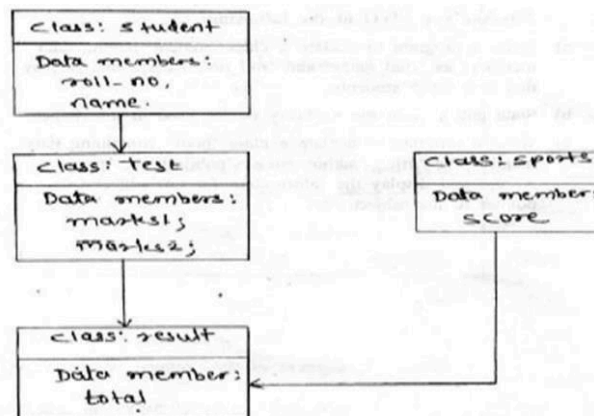 class: student
Data members:
roll_no,
name.
class: test
Data members:
marks1;
marks2;
class: sports
Data member:
score
class: result
Data member:
total